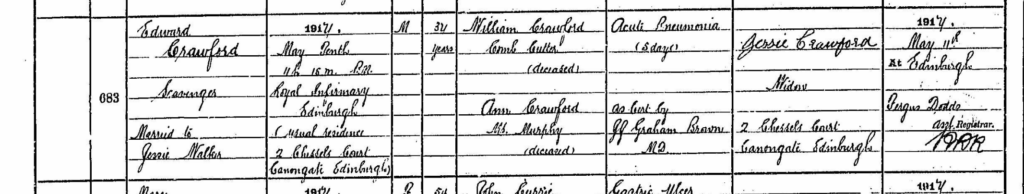 683
Edward
Crawford
Scavenger
Married to
Jessie Walker
1917.
May Tenth
11h 15m. P.M.
Royal Infirmary
Edinburgh
(usual residence
2 Chessels Court
Canongate Edinburgh)
M
years
William Crawford
Comb Cutter
(deceased)
Ann Crawford
M.S. Murphy
(deceased)
Acute Pneumonia
(5 days)
as Cert by
Graham Brown
M.D.
Jessie Crawford
Widow
2 Chessels Court
Canongate, Edinburgh
1917.
May 11th
At Edinburgh
Fergus Dodds
asst. Registrar.
1917.
1917.
54
John Currie
Gastric Ulcer